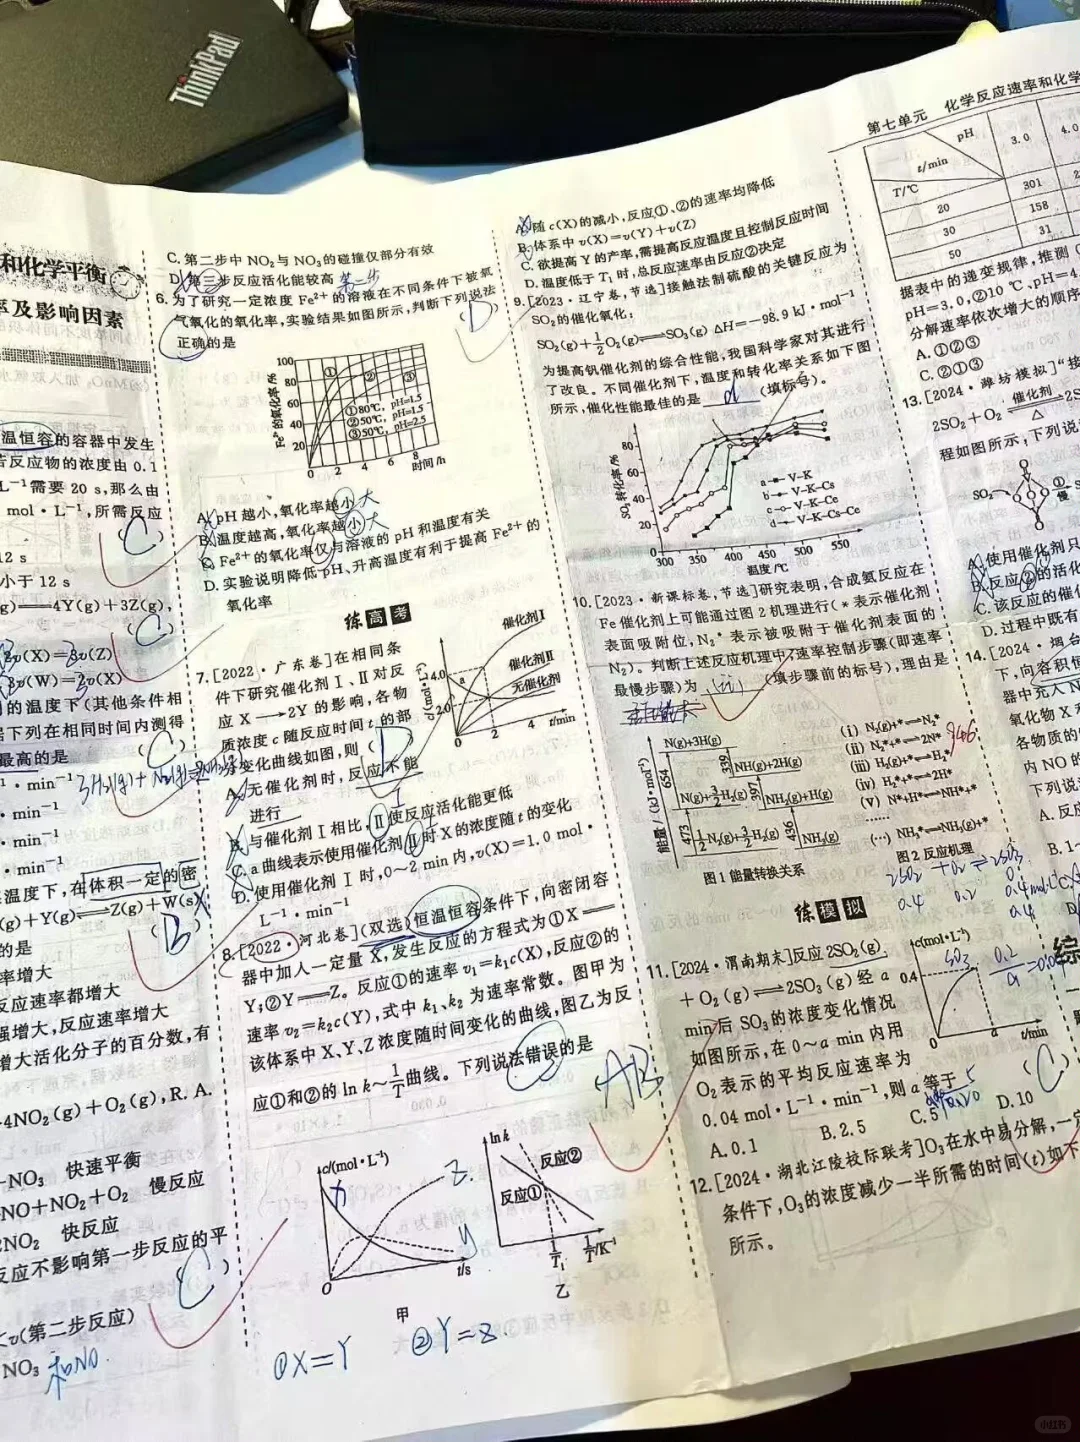 ThinkPad
和化学平衡
率及影响因素
温恒容的容器中发生
若反应物的浓度由 0.1
L⁻¹需要 20 s,那么由
mol·L⁻¹,所需反应
(C)
12 s
小于 12 s
(g)══4Y(g)+3Z(g),
(C)
v(X)=v(Z)
v(W)=v(X)
的温度下(其他条件相
据下列在相同时间内测得
最高的是
(C)
·min⁻¹
mol·min⁻¹
·min⁻¹
·min⁻¹
温度下,在体积一定的密
(g)+Y(g)⇌Z(g)+W(s)
的是
(B)
率增大
反应速率都增大
强增大,反应速率增大
增大活化分子的百分数,有
4NO₂(g)+O₂(g),R. A.
NO₃ 快速平衡
NO+NO₂+O₂ 慢反应
2NO₂ 快反应
反应不影响第一步反应的平
(C)
<v(第二步反应)
NO₃ 和NO
C. 第二步中 NO₂ 与 NO₃ 的碰撞仅部分有效
D. 第三步反应活化能较高 第二步
6. 为了研究一定浓度 Fe²⁺ 的溶液在不同条件下被氧
气氧化的氧化率,实验结果如图所示,判断下列说法
正确的是
(D)
Fe²⁺的氧化率/%
100
80
60
40
20
0 2 4 6 8
时间/h
① ② ③
①80℃, pH=1.5
②50℃, pH=1.5
③50℃, pH=2.5
A. pH 越小,氧化率越小 大
B. 温度越高,氧化率越小 大
C. Fe²⁺ 的氧化率仅与溶液的 pH 和温度有关
D. 实验说明降低 pH、升高温度有利于提高 Fe²⁺ 的
氧化率
练高考
7. [2022·广东卷]在相同条
件下研究催化剂Ⅰ、Ⅱ对反
应 X⟶2Y 的影响,各物
质浓度 c 随反应时间 t 的部
分变化曲线如图,则 (D)
催化剂Ⅰ
催化剂Ⅱ
无催化剂
c/(mol·L⁻¹)
4.0
2.0
a
0 2 4 t/min
A. 无催化剂时,反应不能
进行
Ⅰ
B. 与催化剂Ⅰ相比,Ⅱ使反应活化能更低
C. a 曲线表示使用催化剂Ⅱ时 X 的浓度随 t 的变化
D. 使用催化剂Ⅰ时,0~2 min 内,v(X)=1.0 mol·
L⁻¹·min⁻¹
8. [2022·河北卷](双选)恒温恒容条件下,向密闭容
器中加入一定量 X,发生反应的方程式为①X══
Y;②Y⇌Z。反应①的速率 v₁=k₁c(X),反应②的
速率 v₂=k₂c(Y),式中 k₁、k₂ 为速率常数。图甲为
该体系中 X、Y、Z 浓度随时间变化的曲线,图乙为反
应①和②的 ln k~1/T 曲线。下列说法错误的是
(AB)
c/(mol·L⁻¹)
X
Z
y
O
t/s
甲
ln k
反应②
反应①
1/T₁
1/T/K⁻¹
乙
①X=Y
②Y=Z
A. 随 c(X)的减小,反应①、②的速率均降低
B. 体系中 v(X)=v(Y)+v(Z)
C. 欲提高 Y 的产率,需提高反应温度且控制反应时间
D. 温度低于 T₁ 时,总反应速率由反应②决定
9. [2023·辽宁卷,节选]接触法制硫酸的关键反应为
SO₂ 的催化氧化:
SO₂(g)+1/2O₂(g)⇌SO₃(g) ΔH=−98.9 kJ·mol⁻¹
为提高钒催化剂的综合性能,我国科学家对其进行
了改良。不同催化剂下,温度和转化率关系如下图
所示,催化性能最佳的是 d (填标号)。
SO₂转化率/%
80
60
40
20
0
300 350 400 450 500 550
温度/℃
a V-K
b V-K-Cs
c V-K-Ce
d V-K-Cs-Ce
10. [2023·新课标卷,节选]研究表明,合成氨反应在
Fe 催化剂上可能通过图 2 机理进行(*表示催化剂
表面吸附位,N₂* 表示被吸附于催化剂表面的
N₂)。判断上述反应机理中,速率控制步骤(即速率
最慢步骤)为 (ii) (填步骤前的标号),理由是
能量/(kJ·mol⁻¹)
N(g)+3H(g)
654
339
NH(g)+2H(g)
N(g)+3/2H₂(g)
397
NH₂(g)+H(g)
473
1/2N₂(g)+3/2H₂(g)
436
NH₃(g)
图 1 能量转换关系
(i) N₂(g)+*⇌N₂*
(ii) N₂*+*⇌2N* 946
(iii) H₂(g)+*⇌H₂*
(iv) H₂*+*⇌2H*
(v) N*+H*⇌NH*+*
……
(…) NH₃*⇌NH₃(g)+*
图 2 反应机理
2SO₂ + O₂ ⇌ 2SO₃
0.4 0.2 0.4
练模拟
11. [2024·渭南期末]反应 2SO₂(g)
+O₂(g)⇌2SO₃(g)经 a
min 后 SO₃ 的浓度变化情况
如图所示,在 0~a min 内用
O₂ 表示的平均反应速率为
0.04 mol·L⁻¹·min⁻¹,则 a 等于
(C)
c/(mol·L⁻¹)
SO₃
0.4
0
a t/min
0.2/a=0.04
A. 0.1
B. 2.5
C. 5
D. 10
12. [2024·湖北江陵校际联考]O₃ 在水中易分解,一定
条件下,O₃ 的浓度减少一半所需的时间(t)如下
所示。
第七单元 化学反应速率和化学
pH
t/min
T/℃
3.0 4.0
20 301
30 158
50 31
据表中的递变规律,推测
pH=3.0,②10 ℃、pH=4
分解速率依次增大的顺序
A. ①②③
C. ②①③
13. [2024·潍坊模拟]“接
2SO₂+O₂⇌2S
催化剂
△
程如图所示,下列说
SO₂
①
慢
A. 使用催化剂只
B. 反应②的活化
C. 该反应的催化
D. 过程中既有
14. [2024·烟台
下,向容积恒
器中充入 N
氧化物 X 和
各物质的
内 NO 的
下列说
A. 反应
B. 1~
C.
D.
综
小红书